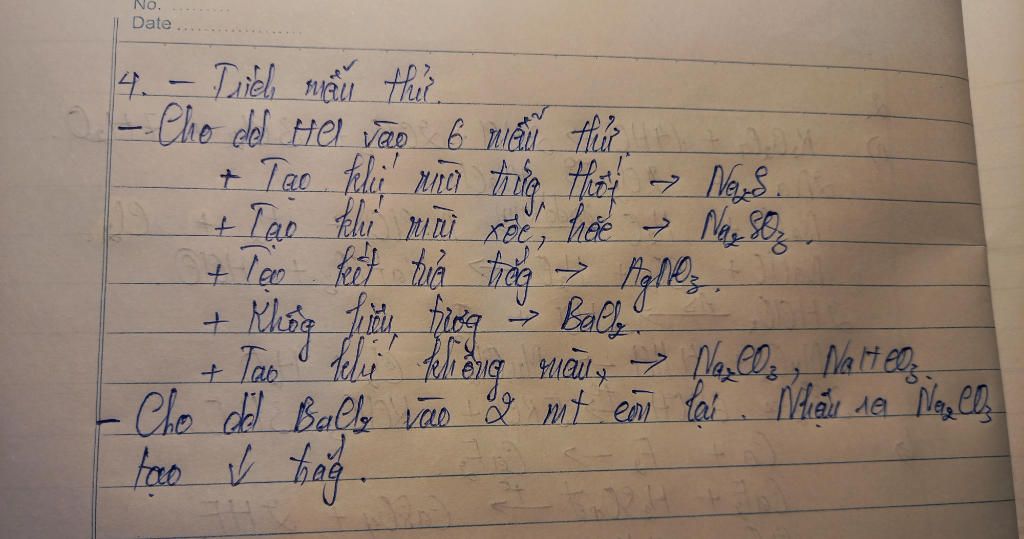 No. .........
Date ...................
4. - Trích mẫu thử.
- Cho dd HCl vào 6 mẫu thử.
+ Tạo khí mùi trứg thối → Na₂S.
+ Tạo khí mùi xốc, hắc → Na₂SO₃.
+ Tạo kết tủa trắg → AgNO₃.
+ Khôg hiện tượg → BaCl₂.
+ Tạo khí không màu, → Na₂CO₃, NaHCO₃.
- Cho dd BaCl₂ vào 2 mt còn lại. Nhận ra Na₂CO₃
tạo ↓ trắg.